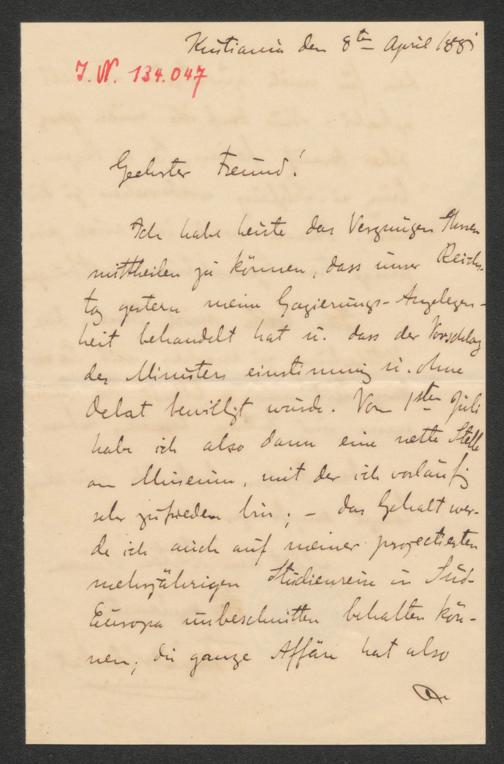 Kristiania den 8ten April 188
J. N. 134.047
Geehrter Freund!
Ich habe heute das Vergnügen Ihnen
mittheilen zu können, dass unser Reichs-
tag gestern meine Gagierungs-Angelegen-
heit behandelt hat u. dass der Vorschlag
des Ministers einstimmig u. ohne
Debat bewilligt wurde. Vom 1sten Juli
habe ich also dann eine nette Stelle
am Museum, mit der ich vorläufig
sehr zufrieden bin; – das Gehalt wer-
de ich auch auf meiner projectierten
mehrjährigen Studienreise in Süd-
Europa unbeschnitten behalten kön-
nen; die ganze Affäre hat also